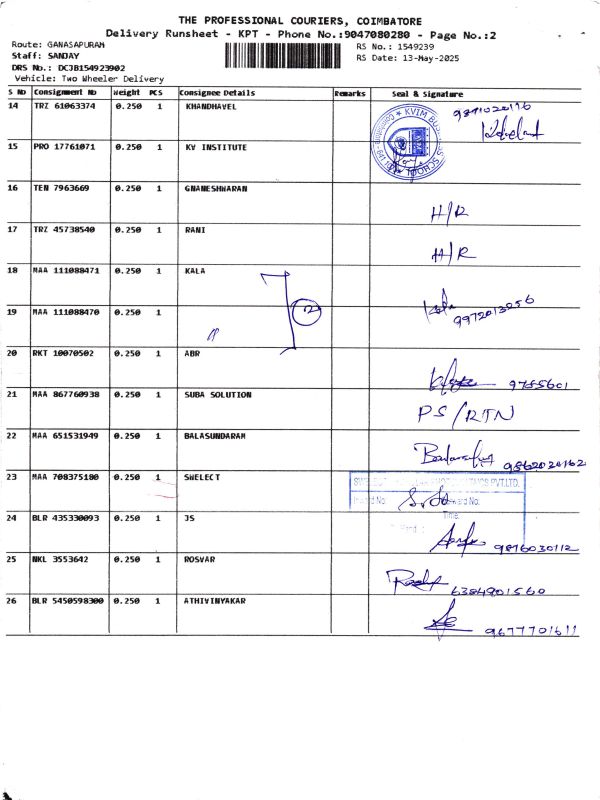 THE PROFESSIONAL COURIERS, COIMBATORE
Delivery Runsheet - KPT - Phone No.:9047080280 - Page No.:2
Route: GANASAPURAM
RS No.: 1549239
Staff: SANJAY
RS Date: 13-May-2025
DRS No.: DCJB154923902
Vehicle: Two Wheeler Delivery
S No Consignment No Weight PCS Consignee Details Remarks Seal & Signature
14 TRZ 61063374 0.250 1 KHANDHAVEL
15 PRO 17761071 0.250 1 KV INSTITUTE
16 TEN 7963669 0.250 1 GNANESHWARAN H/R
17 TRZ 45738540 0.250 1 RANI H/R
18 MAA 111088471 0.250 1 KALA
19 MAA 111088470 0.250 1 " 12 Kala 9972013256
20 RKT 10070502 0.250 1 ABR 9785601
21 MAA 867760938 0.250 1 SUBA SOLUTION PS/RTN
22 MAA 651531949 0.250 1 BALASUNDARAM 9862020162
23 MAA 708375180 0.250 1 SWELECT
24 BLR 435330093 0.250 1 JS 9876030112
25 NKL 3553642 0.250 1 ROSVAR 6384901560
26 BLR 5450598300 0.250 1 ATHIVINYAKAR 9677701611